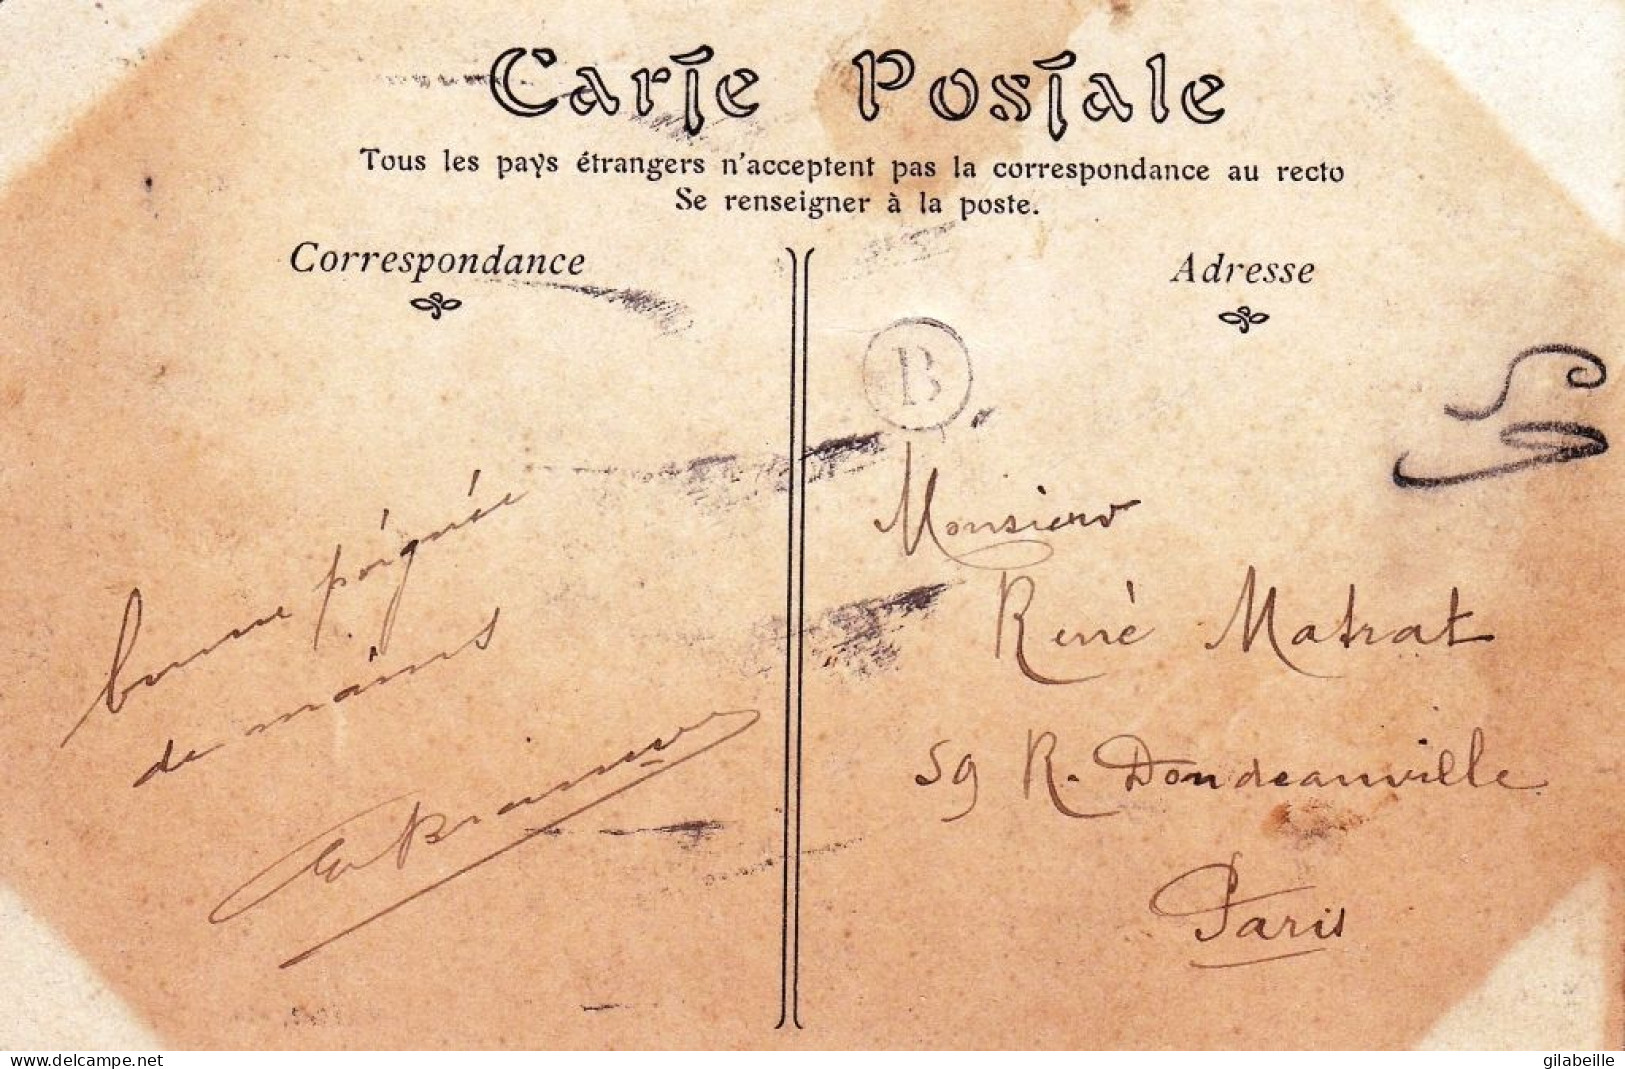 Carte Postale
Tous les pays étrangers n'acceptent pas la correspondance au recto
Se renseigner à la poste.
Correspondance
Adresse
B
bonne poignée
de mains
Monsieur
René Matrat
59 R. Dondeanville
Paris
www.delcampe.net
gilabeille